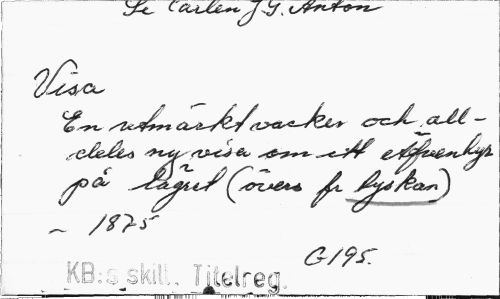 Se Carlén J G. Anton
Visa
En utmärkt vacker och all-
deles ny visa om ett
på lägret (övers fr tyskan)
~ 1875
G 195.
KB:s skill. Titelreg.